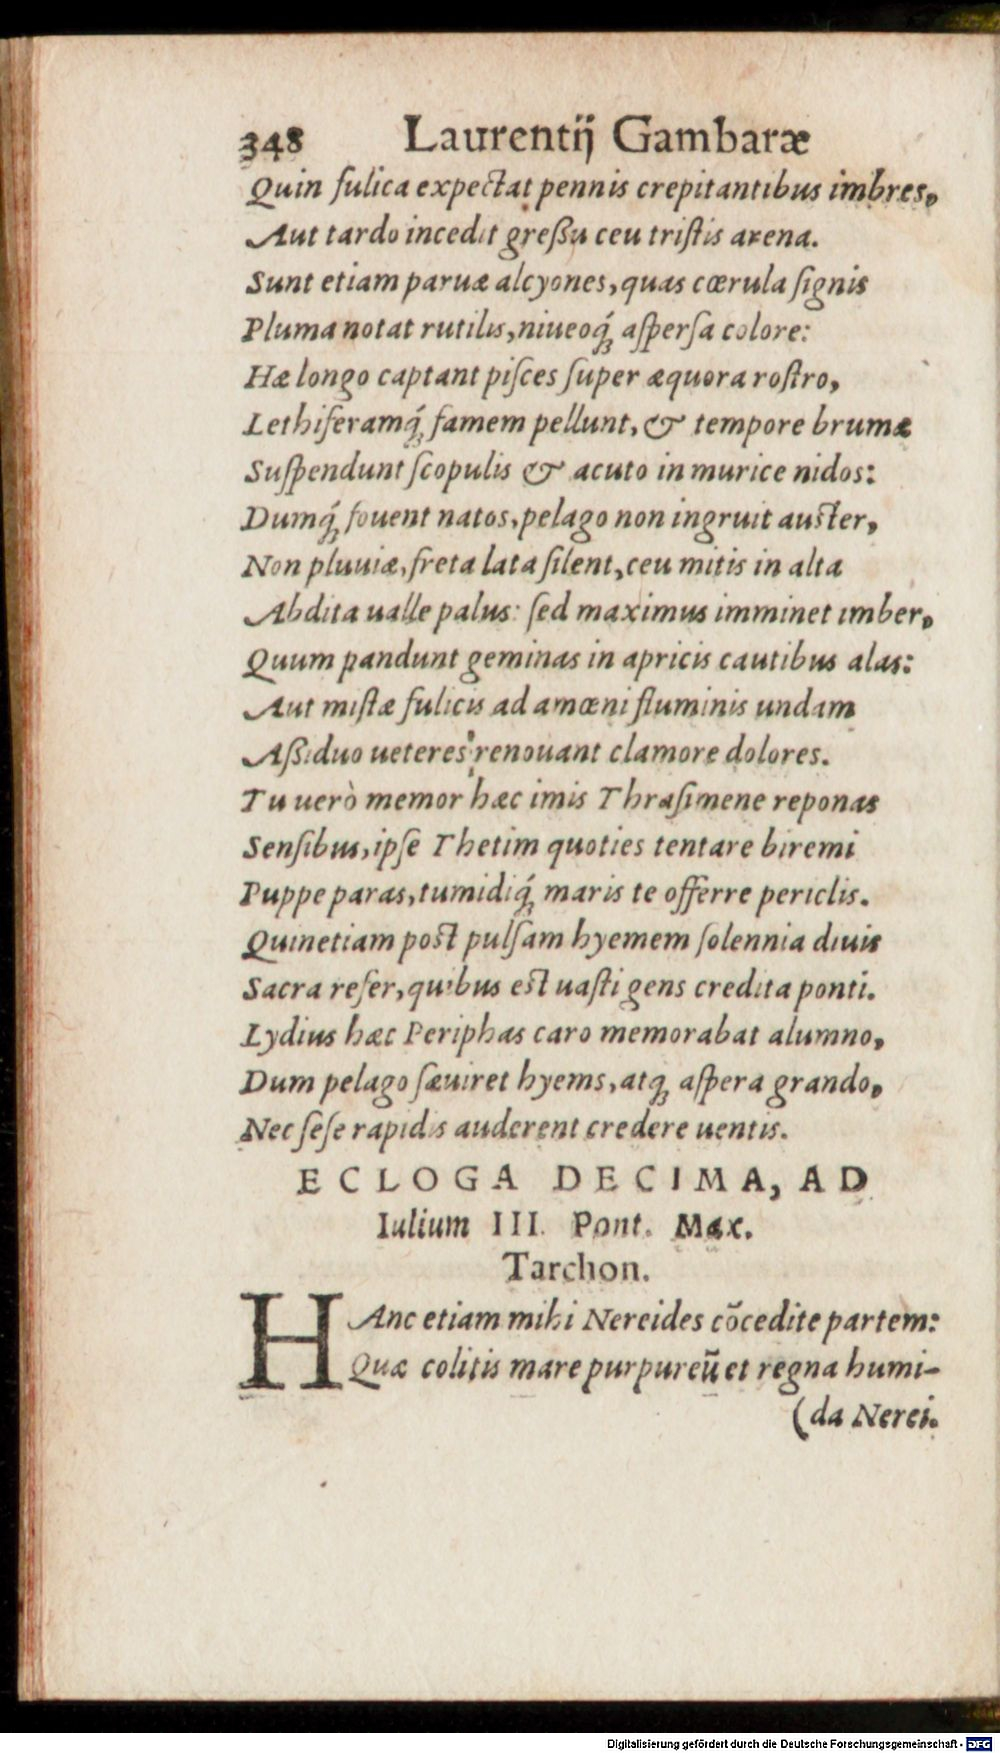 348 Laurentij Gambaræ
Quin fulica expectat pennis crepitantibus imbres,
Aut tardo incedit greßu ceu tristis arena.
Sunt etiam paruæ alcyones, quas cœrula signis
Pluma notat rutilis, niueoq́; aspersa colore:
Hæ longo captant pisces super æquora rostro,
Lethiferamq́; famem pellunt, & tempore brumæ
Suspendunt scopulis & acuto in murice nidos:
Dumq́; fouent natos, pelago non ingruit auster,
Non pluuiæ, freta lata silent, ceu mitis in alta
Abdita ualle palus: sed maximus imminet imber,
Quum pandunt geminas in apricis cautibus alas:
Aut mistæ fulicis ad amœni fluminis undam
Aßiduo ueteres renouant clamore dolores.
Tu uerò memor hæc imis Thrasimene reponas
Sensibus, ipse Thetim quoties tentare biremi
Puppe paras, tumidiq́; maris te offerre periclis.
Quinetiam post pulsam hyemem solennia diuis
Sacra refer, quibus est uasti gens credita ponti.
Lydius hæc Periphas caro memorabat alumno,
Dum pelago sæuiret hyems, atq; aspera grando,
Nec sese rapidis auderent credere uentis.
ECLOGA DECIMA, AD
Iulium III. Pont. Max.
Tarchon.
HAnc etiam mihi Nereides cõcedite partem:
Quæ colitis mare purpureũ et regna humi-
(da Nerei.
Digitalisierung gefördert durch die Deutsche Forschungsgemeinschaft - DFG